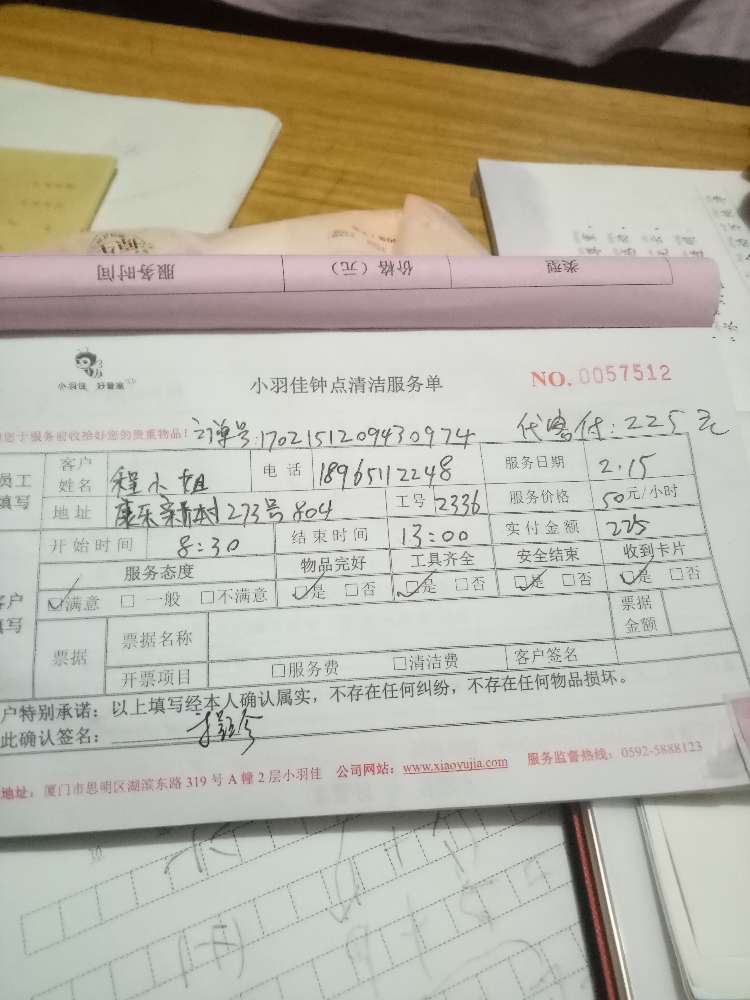 服务时间 价格（元） 类型
小羽佳 好管家
小羽佳钟点清洁服务单 NO. 0057512
您于服务前收拾好您的贵重物品！ 订单号:1702151209430974 代客付:225元
员工填写 客户姓名 程小姐 电话 18965112248 服务日期 2.15
地址 康乐新村273号804 工号 2336 服务价格 50元/小时
开始时间 8:30 结束时间 13:00 实付金额 225
服务态度 物品完好 工具齐全 安全结束 收到卡片
客户填写 ☑满意 □一般 □不满意 ☑是 □否 ☑是 □否 ☑是 □否 ☑是 □否
票据 票据名称 票据金额
开票项目 □服务费 □清洁费 客户签名
户特别承诺：以上填写经本人确认属实，不存在任何纠纷，不存在任何物品损坏。
此确认签名：
地址：厦门市思明区湖滨东路319号A幢2层小羽佳 公司网站：www.xiaoyujia.com 服务监督热线：0592-5888123